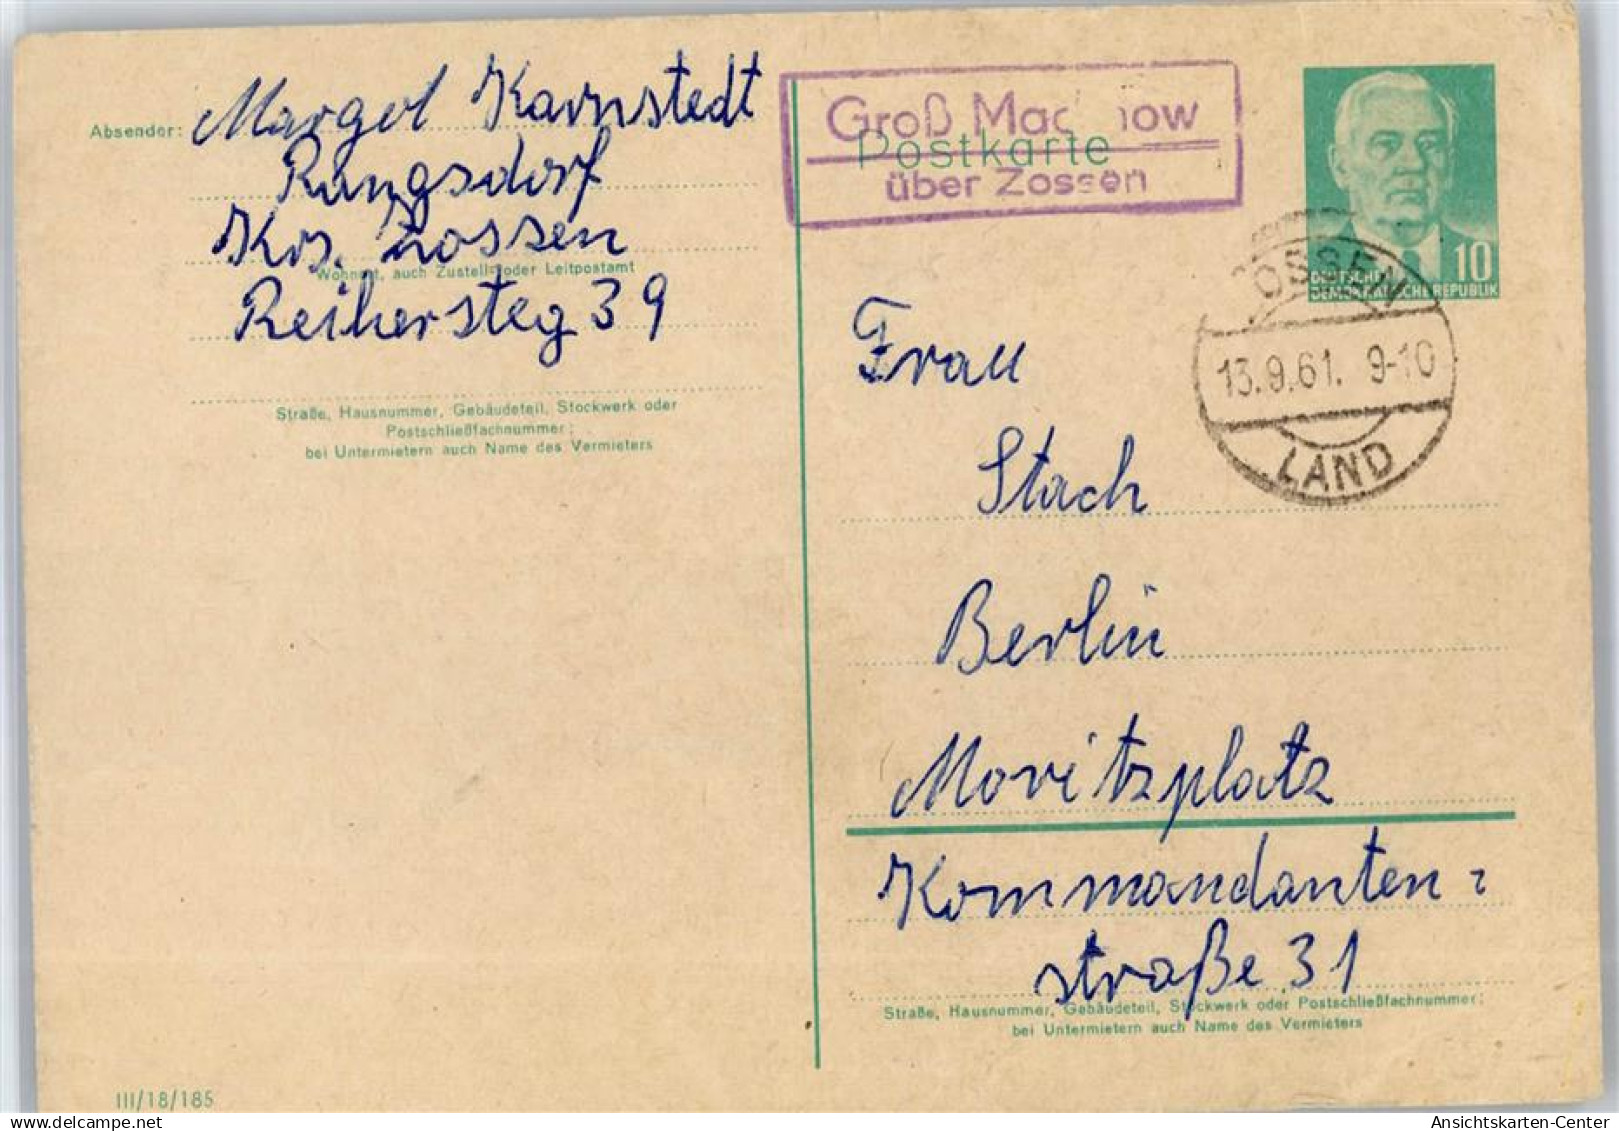 Absender: Margot Karnstedt
Rangsdorf
Krs. Zossen
Wohnort, auch Zustell- oder Leitpostamt
Reihersteg 39
Straße, Hausnummer, Gebäudeteil, Stockwerk oder
Postschließfachnummer;
bei Untermietern auch Name des Vermieters
III/18/185
Groß Machnow
Postkarte
über Zossen
10
DEUTSCHE
DEMOKRATISCHE REPUBLIK
ZOSSEN
13.9.61. 9-10
LAND
Frau
Stach
Berlin
Moritzplatz
Kommandanten-
straße 31
Straße, Hausnummer, Gebäudeteil, Stockwerk oder Postschließfachnummer;
bei Untermietern auch Name des Vermieters
Ansichtskarten-Center